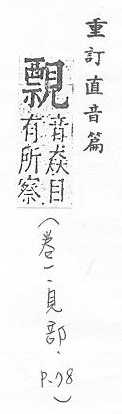 重訂直音篇
䙳
音焱目
有所察
（卷一·見部·P.78）